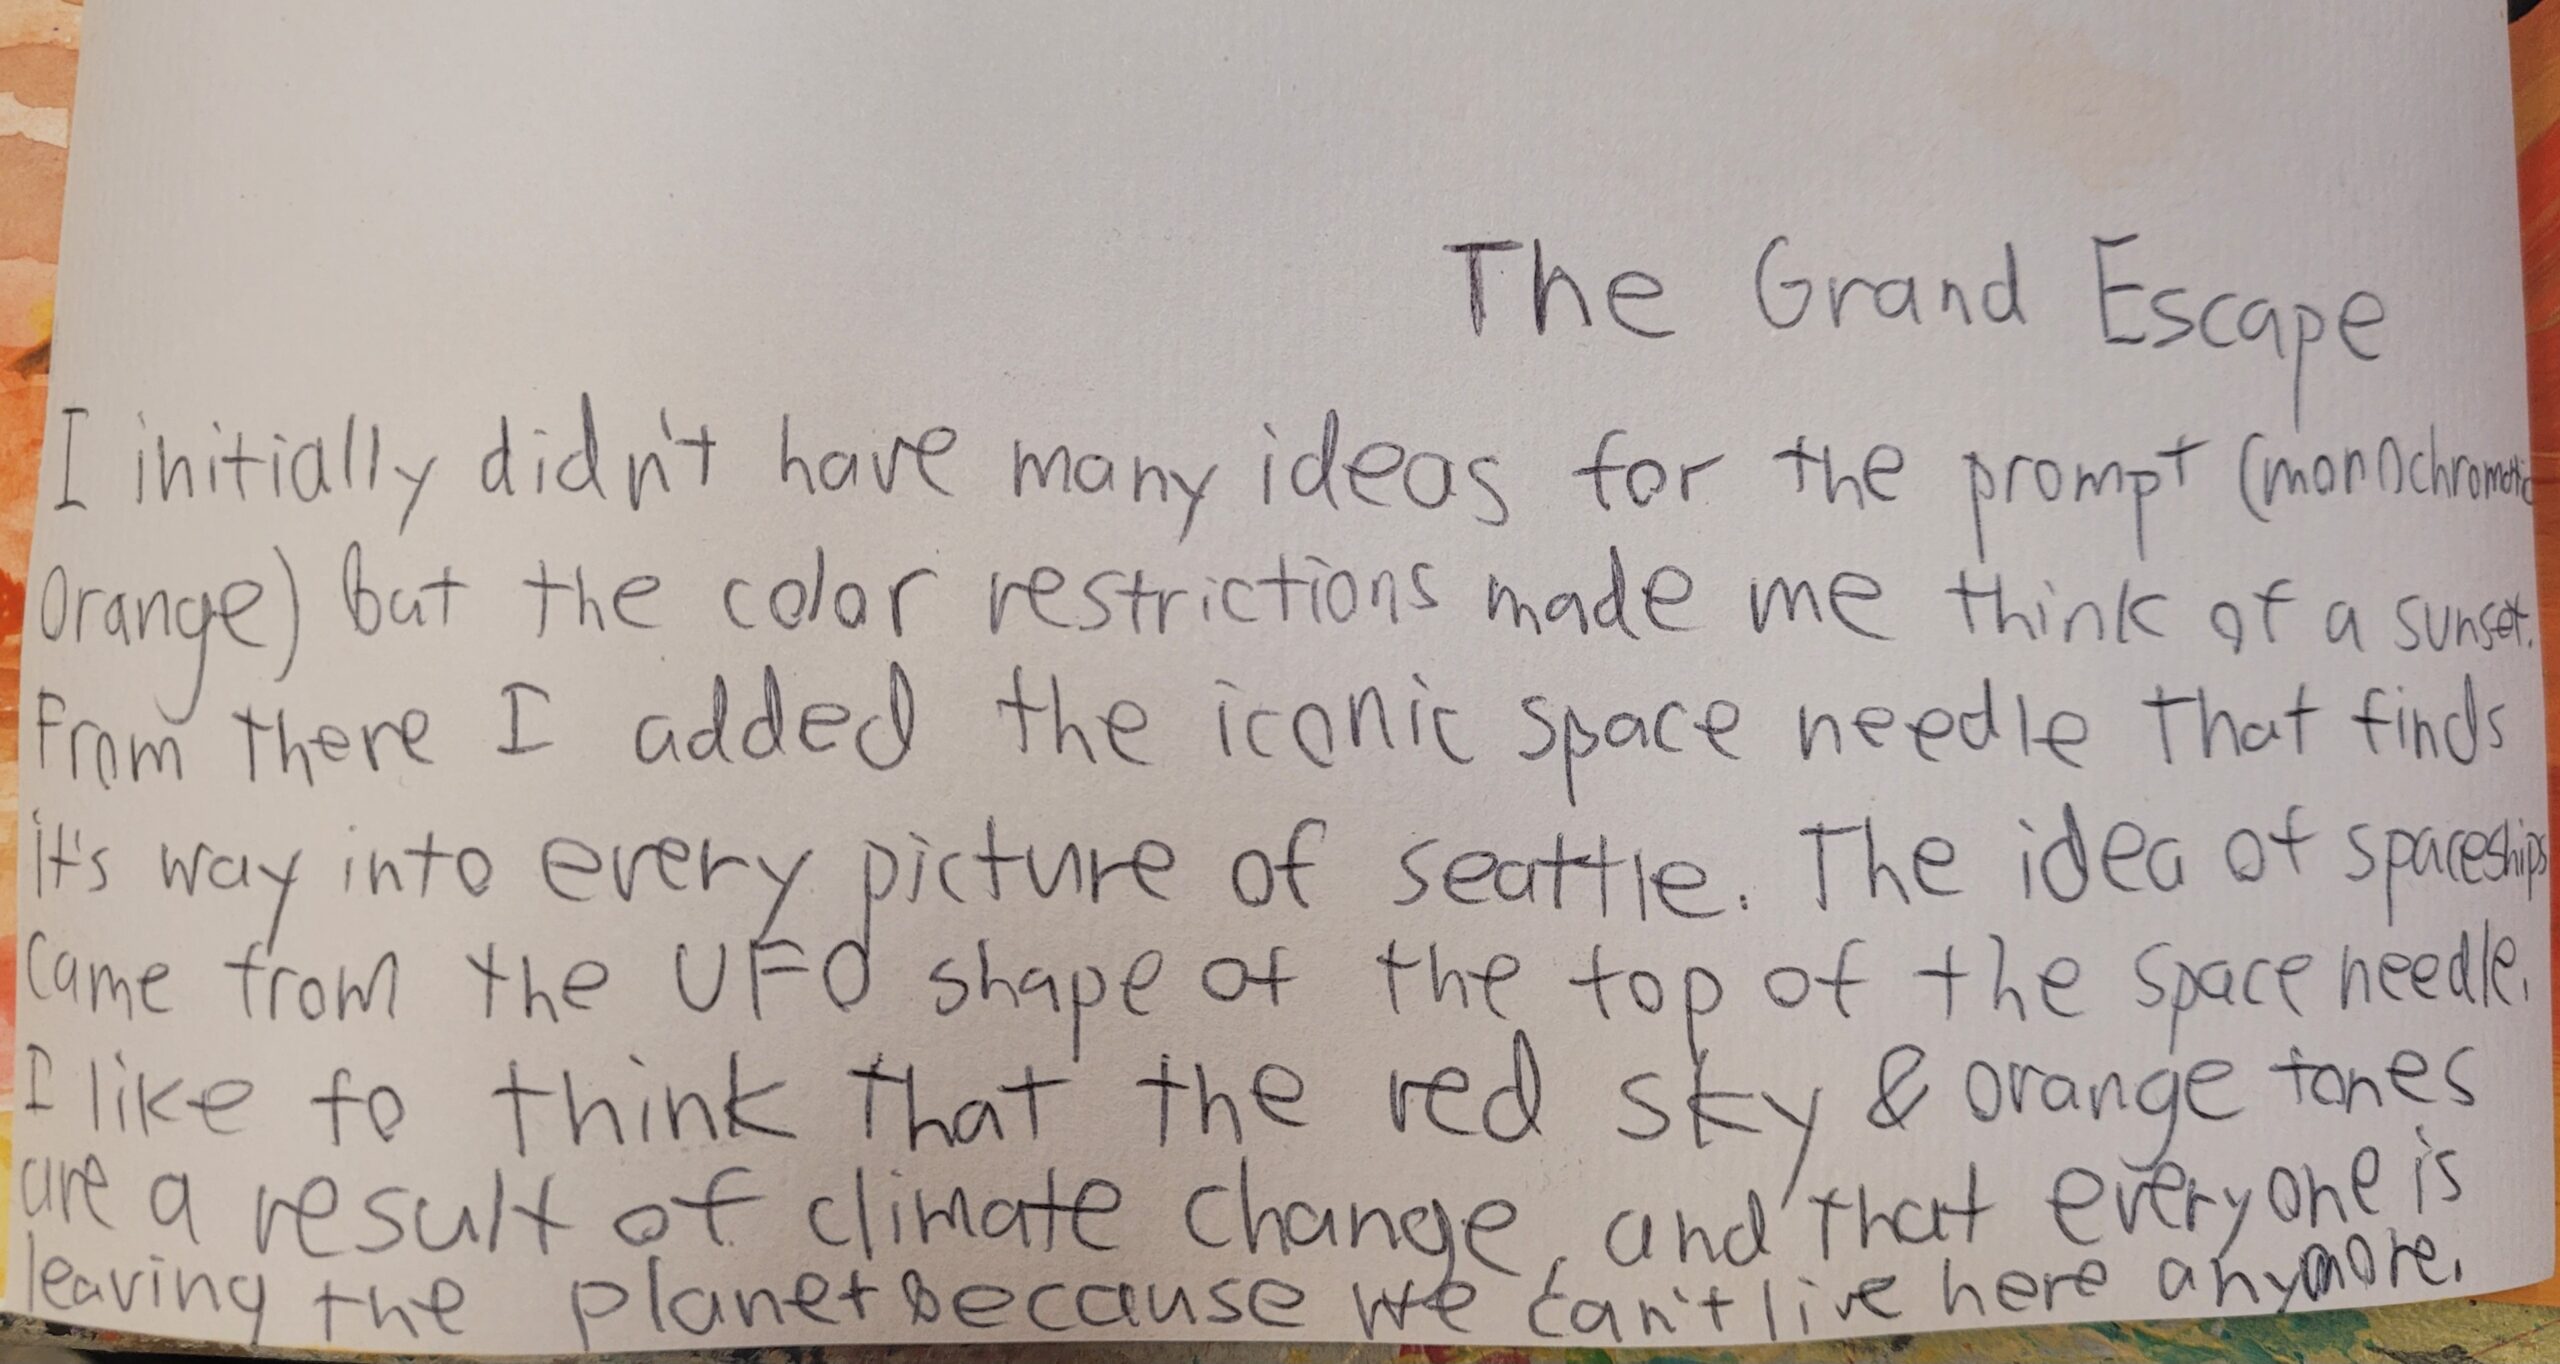 The Grand Escape
I initially didn't have many ideas for the prompt (monochromatic
Orange) but the color restrictions made me think of a sunset.
From there I added the iconic space needle that finds
it's way into every picture of seattle. The idea of spaceships
came from the UFO shape of the top of the space needle.
I like to think that the red sky & orange tones
are a result of climate change, and that everyone is
leaving the planet because we can't live here anymore.